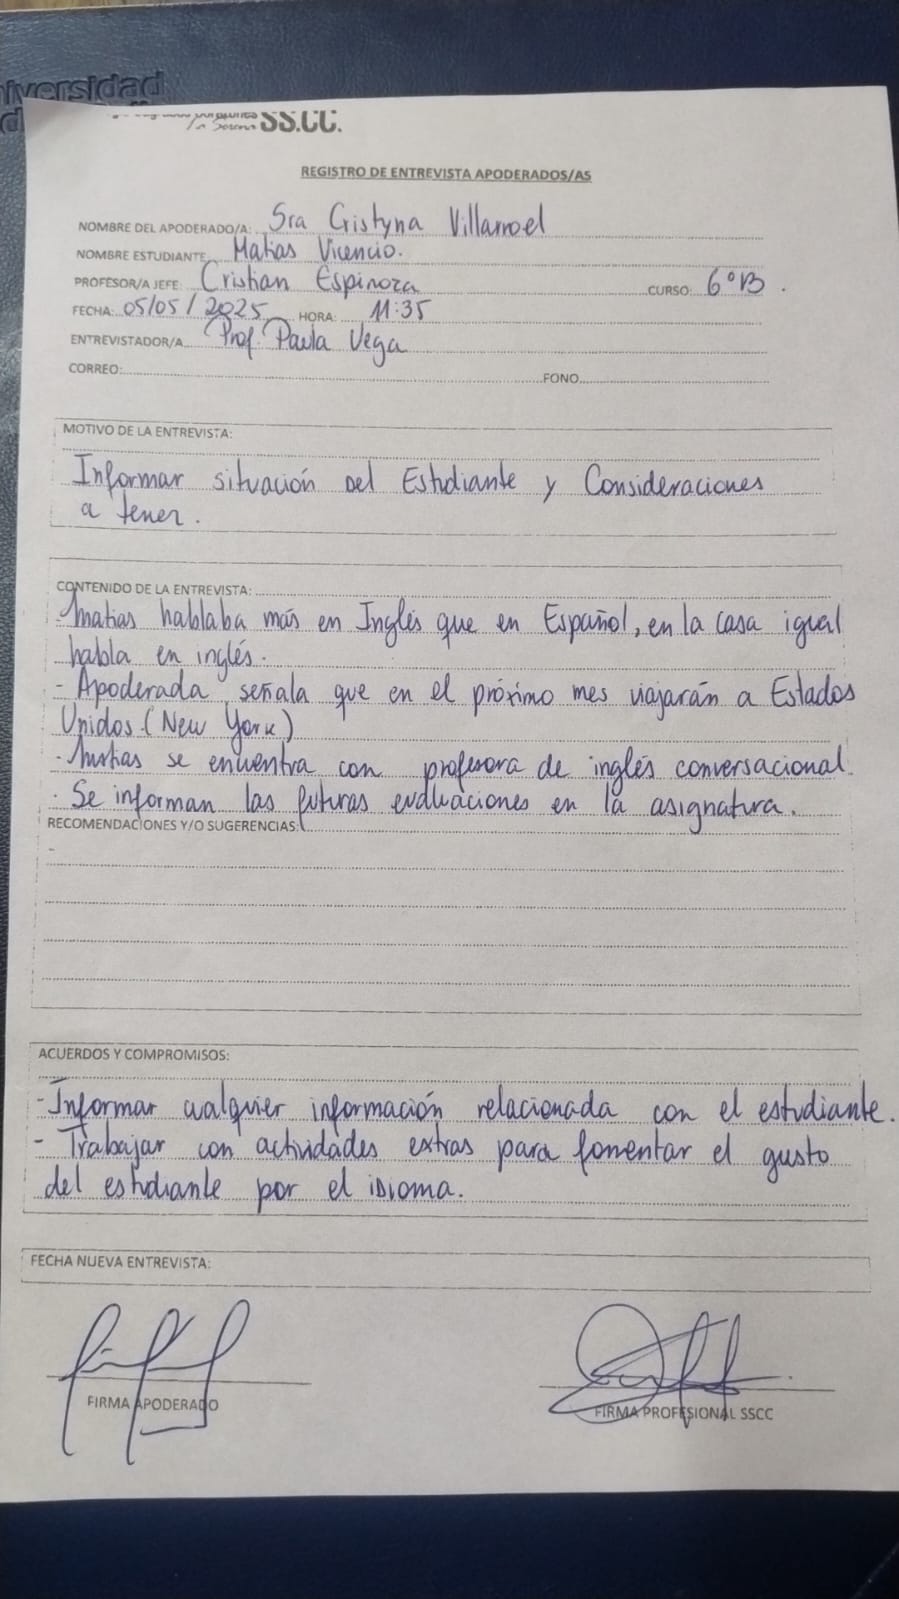 iversidad
La Serena SS.CC.
REGISTRO DE ENTREVISTA APODERADOS/AS
NOMBRE DEL APODERADO/A: Sra Cristyna Villarroel
NOMBRE ESTUDIANTE Matias Vicencio.
PROFESOR/A JEFE: Cristian Espinoza CURSO: 6°B.
FECHA: 05/05/2025 HORA: 11:35
ENTREVISTADOR/A Prof. Paula Vega
CORREO: FONO
MOTIVO DE LA ENTREVISTA:
Informar situación del Estudiante y Consideraciones
a tener.
CONTENIDO DE LA ENTREVISTA:
- Matias hablaba más en Inglés que en Español, en la casa igual
habla en inglés.
- Apoderada señala que en el próximo mes viajarán a Estados
Unidos. (New York)
- Matias se encuentra con profesora de inglés conversacional.
- Se informan las futuras evaluaciones en la asignatura.
RECOMENDACIONES Y/O SUGERENCIAS:
-
ACUERDOS Y COMPROMISOS:
- Informar cualquier información relacionada con el estudiante.
- Trabajar con actividades extras para fomentar el gusto
del estudiante por el idioma.
FECHA NUEVA ENTREVISTA:
FIRMA APODERADO FIRMA PROFESIONAL SSCC